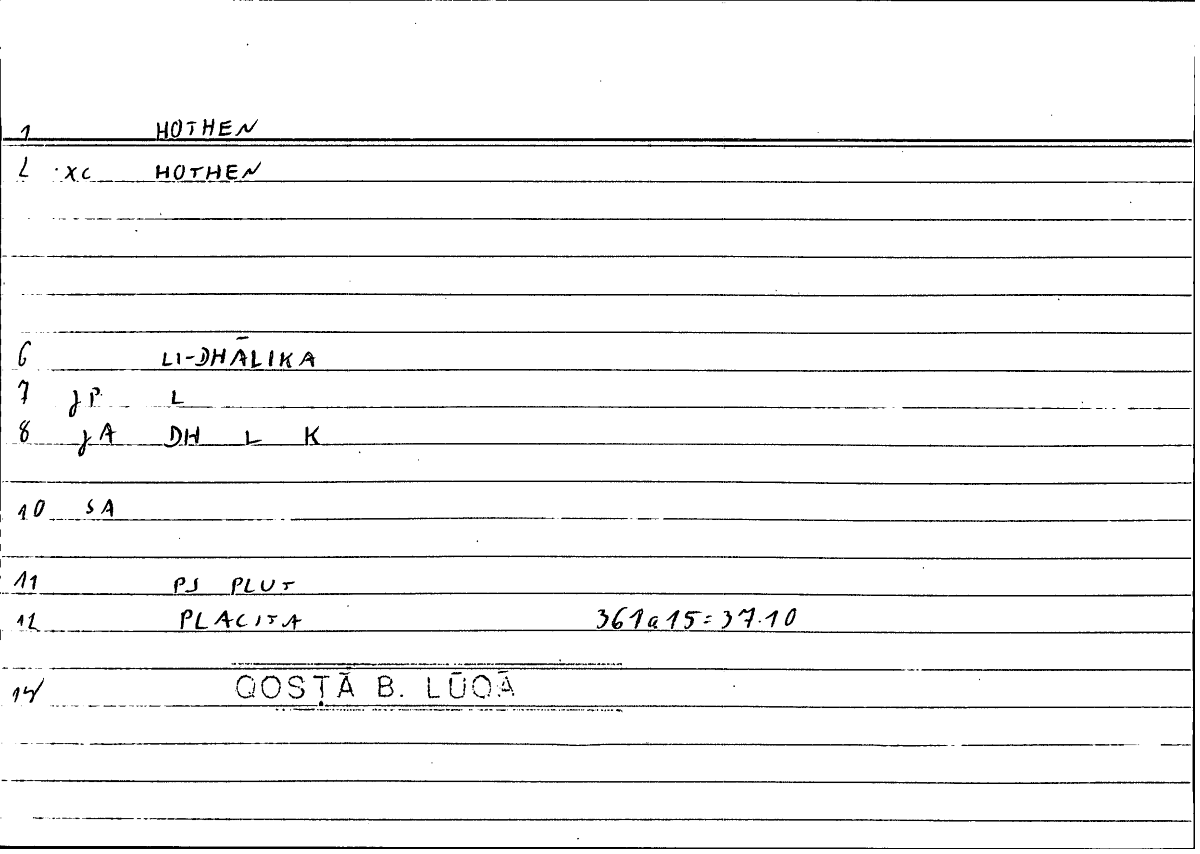 1 HOTHEN
2 XC HOTHEN
6 LI-DHĀLIKA
7 JP L
8 JA DH L K
10 SA
11 PS PLUT
12 PLACITA 361a15=37.10
14 QOSṬĀ B. LŪQĀ